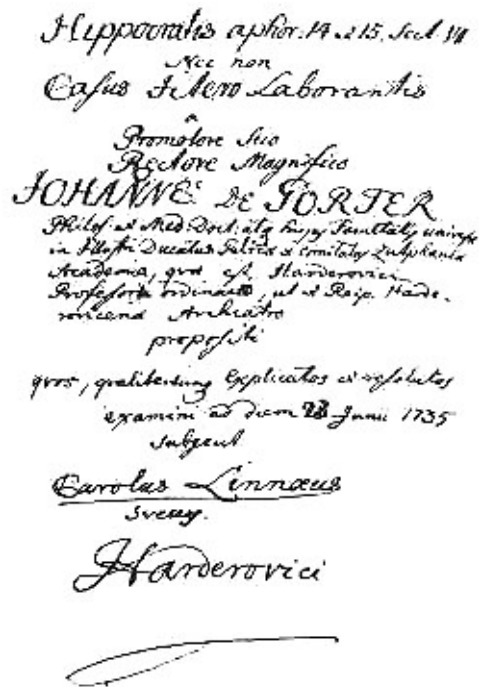 Hippocratis aphor. 14 & 15. Sect. VII
Nec non
Casus Ictero Laborantis
a
Promotore suo
Rectore Magnifico
JOHANNE DE GORTER
Philos. et Med. Doct.
in Illustri Ducatus Gelriæ et comitatus Zutphania
Academia, qvæ est Harderovici
Professore ordinario, ut et Reip. Harde-
rovicenæ Archiatro
propositi
qvos, qvalitercunq explicatos et resolutos
examini ad diem Junii 1735
subjecit
Carolus Linnæus
Svecus.
Harderovici